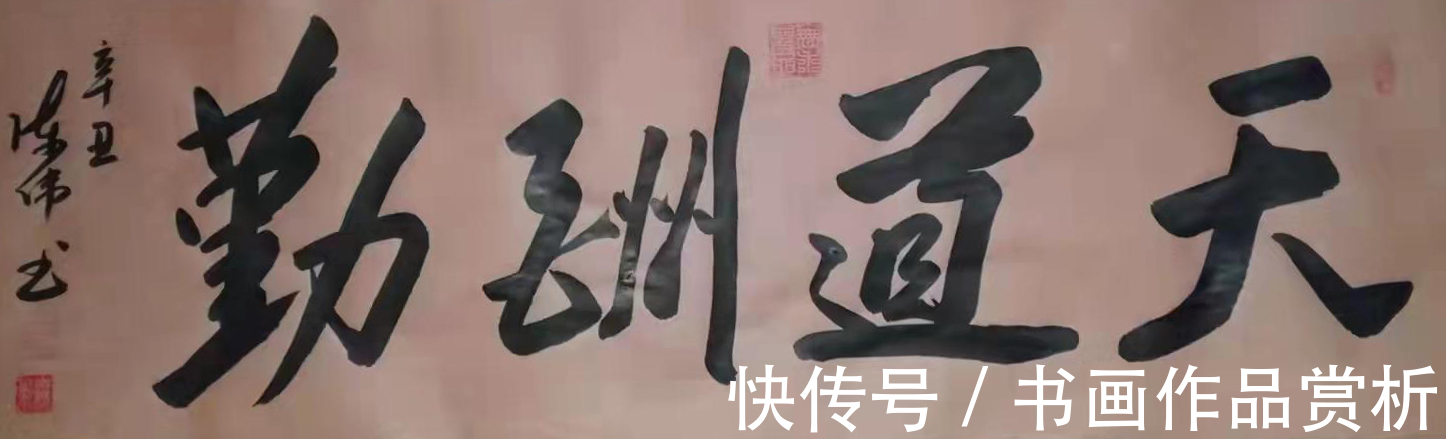 天道酬勤
辛丑
陈伟书
快传号 / 书画作品赏析